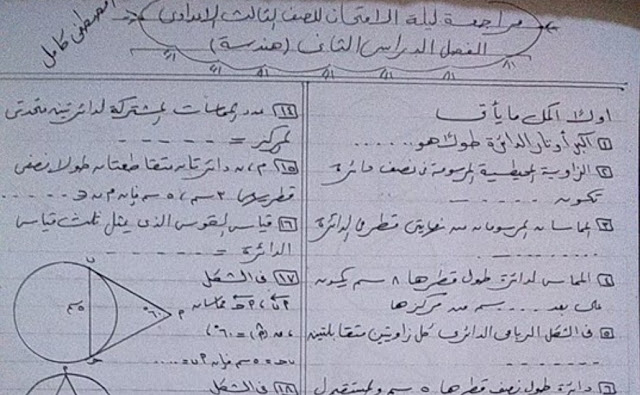 مراجعة ليلة الامتحان للصف الثالث الاعدادى
الفصل الدراسى الثانى (هندسة)
مصطفى كامل
اولا: اكمل ما يأتى
١ اكبر أوتار الدائرة طولا هو ......
٢ الزاوية المحيطية المرسومة فى نصف دائرة
تكون ......
٣ المماسان المرسومان من نهايتى قطر فى الدائرة
......
٤ المماس لدائرة طول قطرها ٨ سم يكون
على بعد .... سم من مركزها
٥ فى الشكل الرباعى الدائرى كل زاويتين متقابلتين
......
٦ دائرة طول نصف قطرها ٥ سم والمستقيم ل
١٤ عدد المماسات المشتركة لدائرتين متحدتى
المركز = ......
١٥ م ، ن دائرتان متقاطعتان طولا نصفى
قطريهما ٣ سم ، ٥ سم فإن م ن ∈ ......
١٦ قياس القوس الذى يمثل ثلث قياس
الدائرة = ......
١٧ فى الشكل
مماسان
= ٦٠°
= ٥ سم فإن ......
١٨ فى الشكل